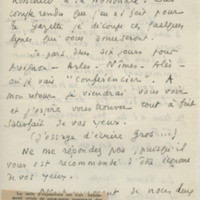 compte rendu que j'en ai fait pour
la Gazette, et découpe ces quelques
lignes qui vous amuseront.
Je pars dans six jours pour
Avignon - Arles - Nîmes - Alès -
où je vais "conférencier". À
mon retour, je viendrai vous voir
et j'espère vous trouver tout à fait
satisfait de vos yeux.
(J'essaye d'écrire gros...)
Ne me répondez pas, puisqu'il
vous est recommandé d'être économe
de vos yeux.
de nous deux